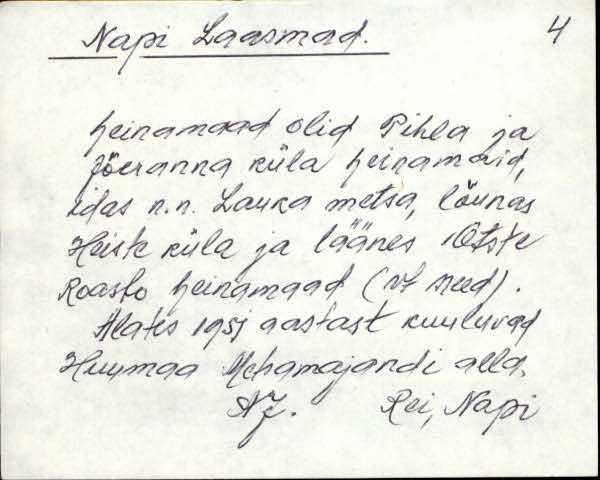 Napi Laasmad. 4
heinamaad olid Pihla ja
Jõeranna küla heinamaid,
idas n.n. Lauka metsa, lõunas
Heiste küla ja läänes Otste
Roasto heinamaad (vt need).
Alates 1951 aastast kuuluvad
Hiiumaa Metsamajandi alla.
AJ. Rei, Napi